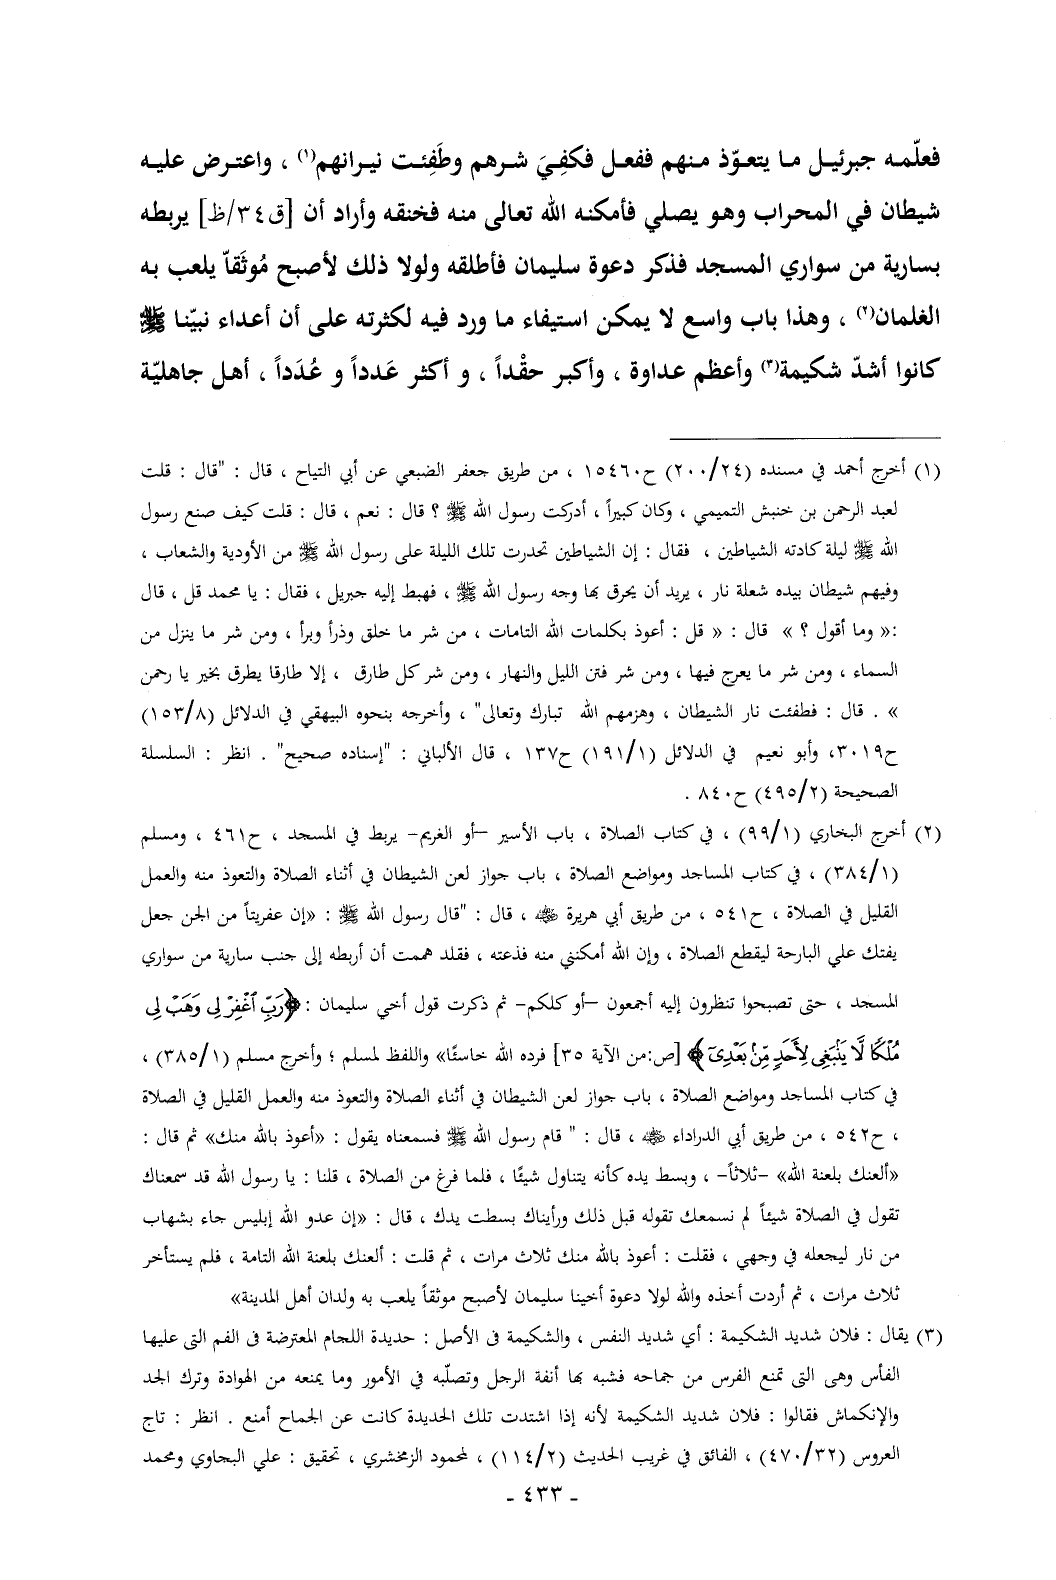 فعلّمه جبرئيل ما يتعوّذ منهم ففعل فكفِيَ شرهم وطَفِئت نيرانهم(١) ، واعترض عليه
شيطان في المحراب وهو يصلي فأمكنه الله تعالى منه فخنقه وأراد أن [ق٣٤/ظ] يربطه
بسارية من سواري المسجد فذكر دعوة سليمان فأطلقه ولولا ذلك لأصبح مُوثَقاً يلعب به
الغلمان(٢) ، وهذا باب واسع لا يمكن استيفاء ما ورد فيه لكثرته على أن أعداء نبيّنا ﷺ
كانوا أشدّ شكيمة(٣) وأعظم عداوة ، وأكبر حقْداً ، و أكثر عَدداً و عُدَداً ، أهل جاهليّة
(١) أخرج أحمد في مسنده (٢٠٠/٢٤) ح١٥٤٦٠ ، من طريق جعفر الضبعي عن أبي التياح ، قال : "قال : قلت
لعبد الرحمن بن خنبش التميمي ، وكان كبيراً ، أدركت رسول الله ﷺ ؟ قال : نعم ، قال : قلت كيف صنع رسول
الله ﷺ ليلة كادته الشياطين ، فقال : إن الشياطين تحدرت تلك الليلة على رسول الله ﷺ من الأودية والشعاب ،
وفيهم شيطان بيده شعلة نار ، يريد أن يحرق بها وجه رسول الله ﷺ ، فهبط إليه جبريل ، فقال : يا محمد قل ، قال
:« وما أقول ؟ » قال : « قل : أعوذ بكلمات الله التامات ، من شر ما خلق وذرأ وبرأ ، ومن شر ما ينزل من
السماء ، ومن شر ما يعرج فيها ، ومن شر فتن الليل والنهار ، ومن شر كل طارق ، إلا طارقا يطرق بخير يا رحمن
» . قال : فطفئت نار الشيطان ، وهزمهم الله تبارك وتعالى" ، وأخرجه بنحوه البيهقي في الدلائل (١٥٣/٨)
ح٣٠١٩، وأبو نعيم في الدلائل (١٩١/١) ح١٣٧ ، قال الألباني : "إسناده صحيح" . انظر : السلسلة
الصحيحة (٤٩٥/٢) ح٨٤٠ .
(٢) أخرج البخاري (٩٩/١) ، في كتاب الصلاة ، باب الأسير –أو الغريم- يربط في المسجد ، ح٤٦١ ، ومسلم
(٣٨٤/١) ، في كتاب المساجد ومواضع الصلاة ، باب جواز لعن الشيطان في أثناء الصلاة والتعوذ منه والعمل
القليل في الصلاة ، ح٥٤١ ، من طريق أبي هريرة ﷺ ، قال : "قال رسول الله ﷺ : «إن عفريتاً من الجن جعل
يفتك علي البارحة ليقطع الصلاة ، وإن الله أمكنني منه فذعته ، فقلد هممت أن أربطه إلى جنب سارية من سواري
المسجد ، حتى تصبحوا تنظرون إليه أجمعون –أو كلكم- ثم ذكرت قول أخي سليمان : ﴿رَبِّ ٱغْفِرْ لِى وَهَبْ لِى
مُلْكًا لَّا يَنۢبَغِى لِأَحَدٍ مِّنۢ بَعْدِىٓ﴾ [ص:من الآية ٣٥] فرده الله خاسئًا» واللفظ لمسلم ؛ وأخرج مسلم (٣٨٥/١) ،
في كتاب المساجد ومواضع الصلاة ، باب جواز لعن الشيطان في أثناء الصلاة والتعوذ منه والعمل القليل في الصلاة
، ح٥٤٢ ، من طريق أبي الدراداء ، قال : " قام رسول الله ﷺ فسمعناه يقول : «أعوذ بالله منك» ثم قال :
«ألعنك بلعنة الله» -ثلاثاً- ، وبسط يده كأنه يتناول شيئًا ، فلما فرغ من الصلاة ، قلنا : يا رسول الله قد سمعناك
تقول في الصلاة شيئاً لم نسمعك تقوله قبل ذلك ورأيناك بسطت يدك ، قال : «إن عدو الله إبليس جاء بشهاب
من نار ليجعله في وجهي ، فقلت : أعوذ بالله منك ثلاث مرات ، ثم قلت : ألعنك بلعنة الله التامة ، فلم يستأخر
ثلاث مرات ، ثم أردت أخذه والله لولا دعوة أخينا سليمان لأصبح موثقاً يلعب به ولدان أهل المدينة»
(٣) يقال : فلان شديد الشكيمة : أي شديد النفس ، والشكيمة فى الأصل : حديدة اللجام المعترضة فى الفم التى عليها
الفأس وهى التى تمنع الفرس من جماحه فشبه بها أنفة الرجل وتصلّبه في الأمور وما يمنعه من الهوادة وترك الجد
والإنكماش فقالوا : فلان شديد الشكيمة لأنه إذا اشتدت تلك الحديدة كانت عن الجماح أمنع . انظر : تاج
العروس (٤٧٠/٣٢) ، الفائق في غريب الحديث (١١٤/٢) ، لمحمود الزمخشري ، تحقيق : علي البجاوي ومحمد
- ٤٣٣ -